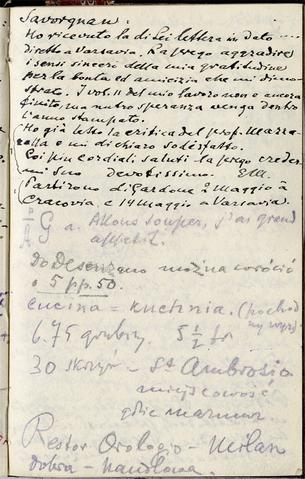 Savorgnan:
Ho ricevuto la di Lei lettera in dato
diretta a Varsavia. La prego aggradire
i sensi sinceri della mia gratitudine
per la bontà ed amicizia che mi dimo
strate. Il vol. II del mio lavoro non e ancora
finito, ma nutro speranza venga dentro
l'anno stampato.
(Ho già letto la critica del prof. Mazza
rella e mi dichiaro sodisfatto.
Coi piu cordiali saluti la prego creder
mi Suo devotissimo. EM.
(Partirono di Gardone 2 Maggio à
Cracovia, e 14 Maggio a Varsavia.
G a. Allons souper, j'ai grand
appetit.
Do Desenzano można wrócić
o 5 pp. 50.
cucina = kuchnia. (pochod
ny wyr.)
6.75 5 1/2
30 – St Ambrosio
miejscowość
gdzie marmur
Restor Orologio – Milan
dobra – handlowa.